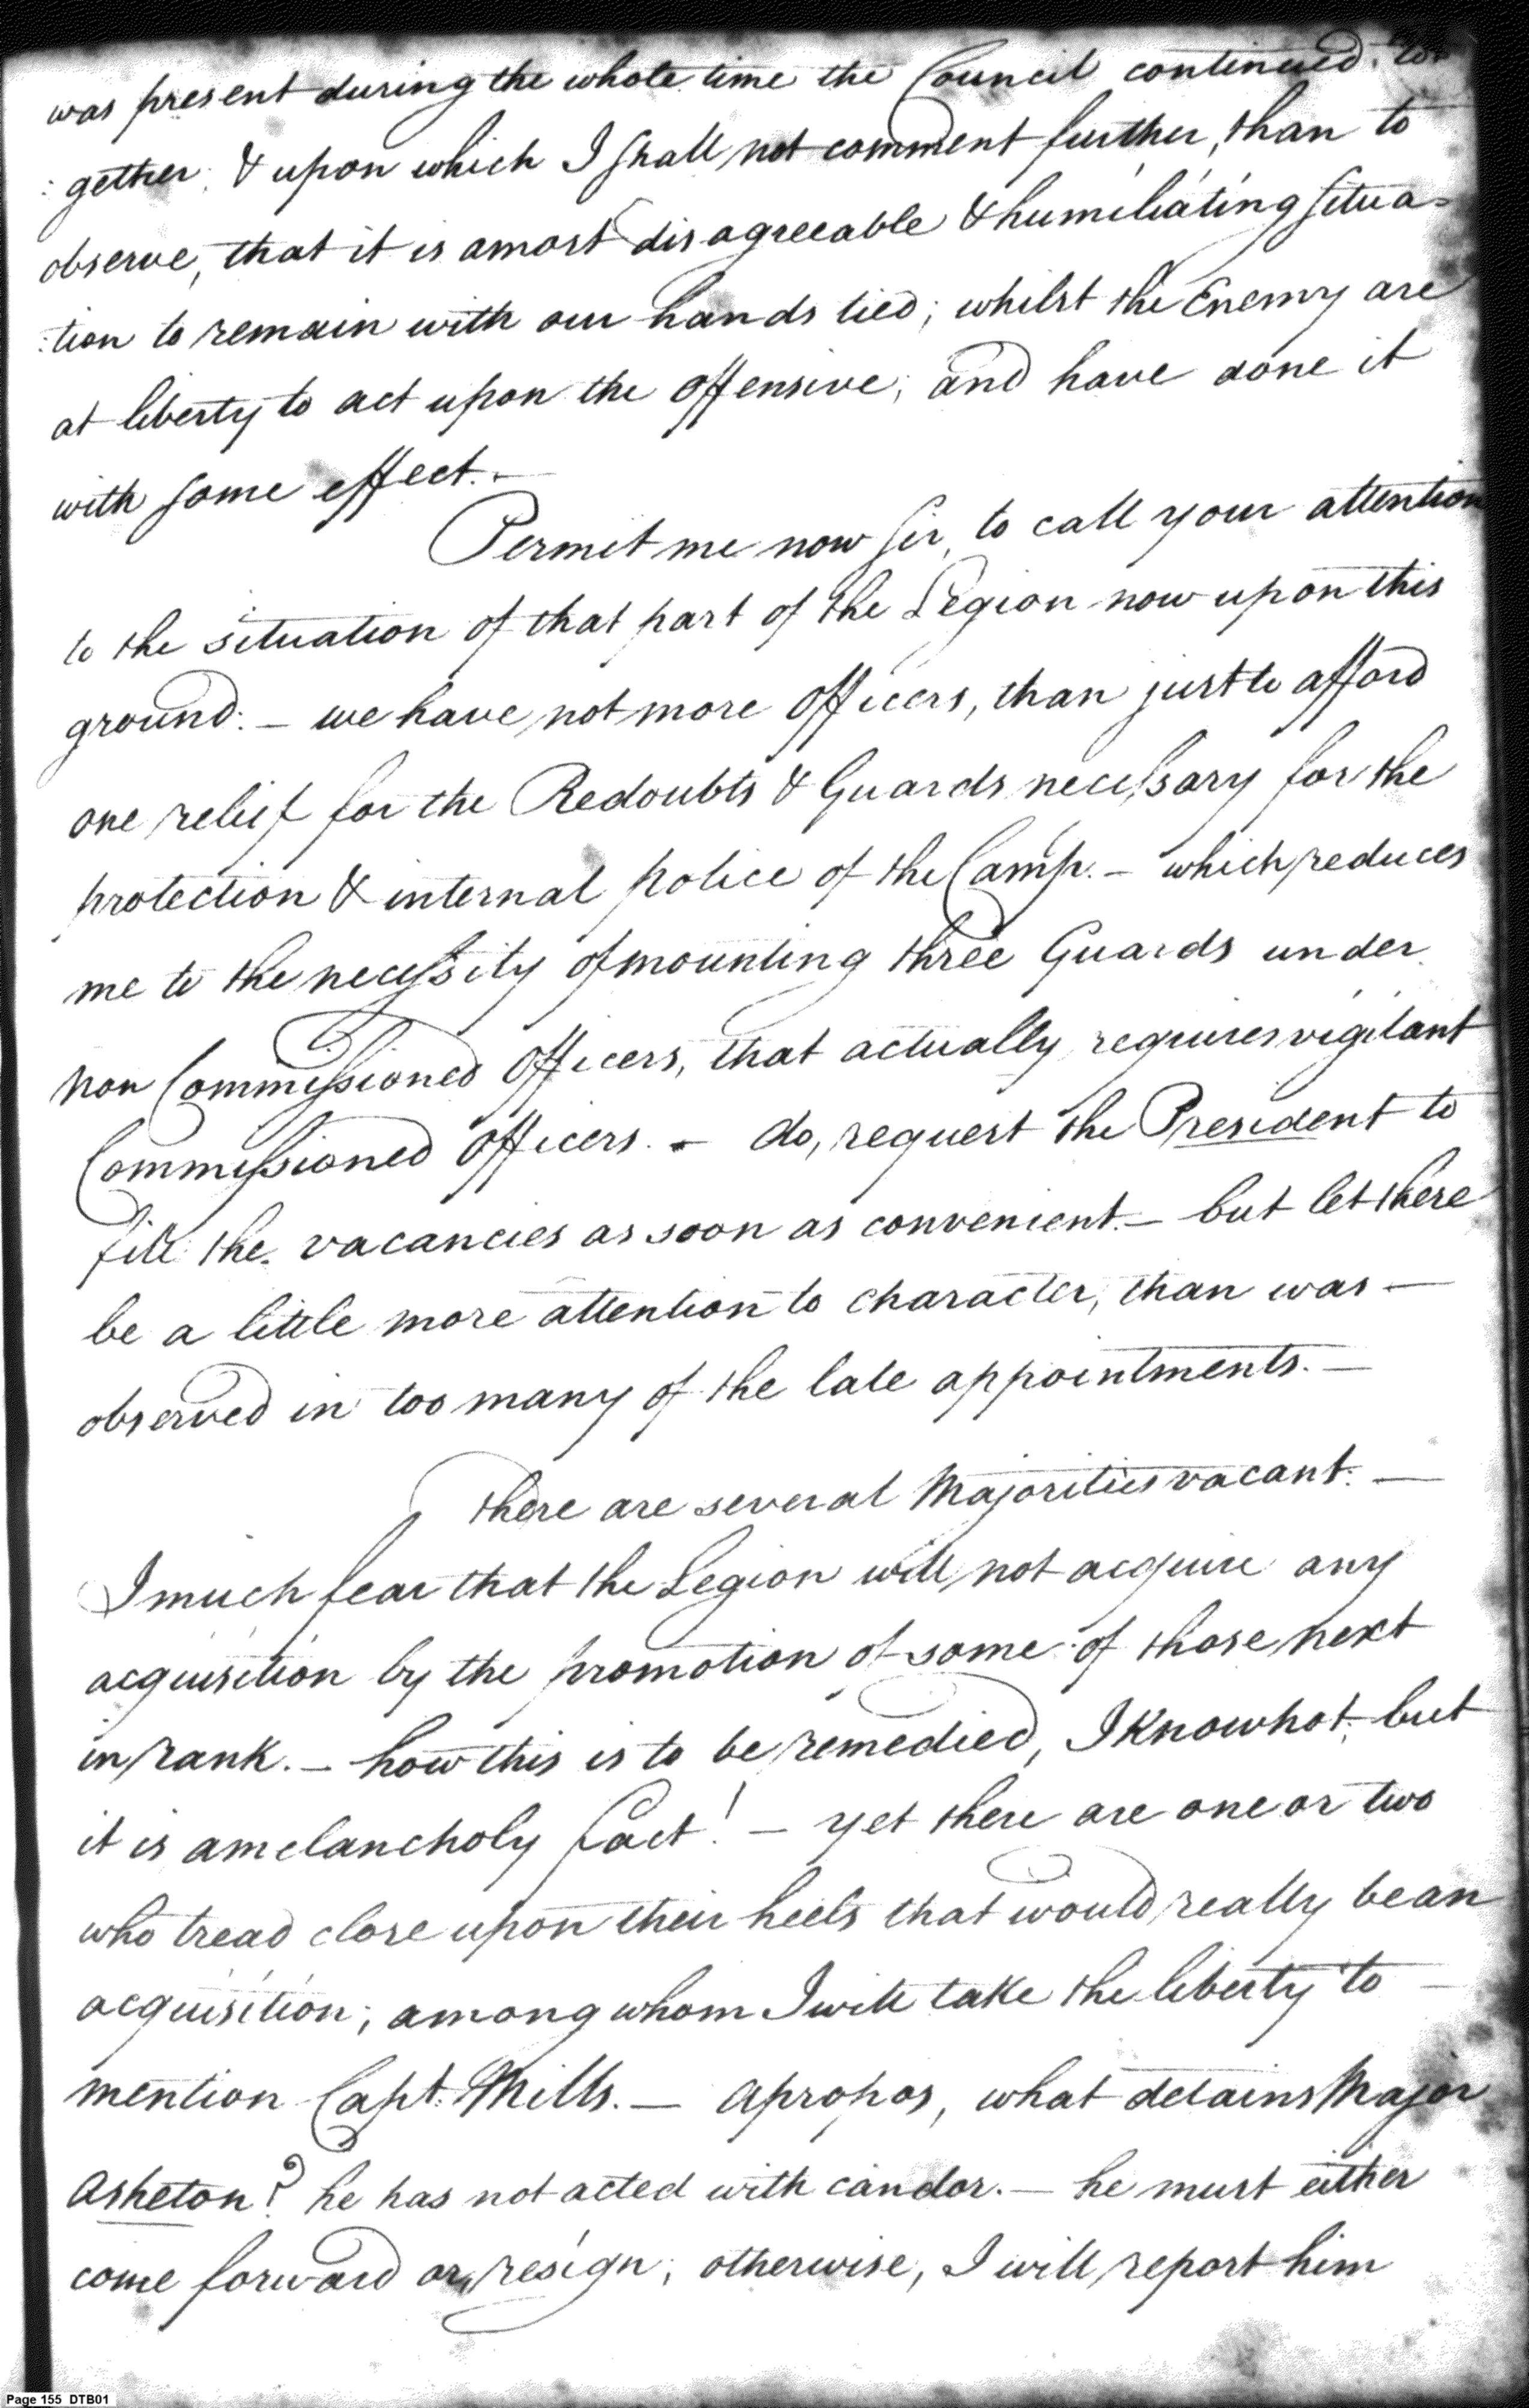 was present during the whole time the Council continued to
:gether; & upon which I shall not comment further, than to
observe, that it is a most disagreeable & humiliating situa=
:tion to remain with our hands tied; whilst the Enemy are
at liberty to act upon the offensive; and have done it
with some effect.—
Permit me now Sir, to call your attention
to the situation of that part of the Legion now upon this
ground:— we have not more Officers, than just to afford
one relief for the Redoubts & Guards necessary for the
protection & internal police of the Camp.— which reduces
me to the necessity of mounting three Guards under
non Commissioned Officers, that actually requires vigilant
Commissioned Officers.— do, request the President to
fill the vacancies as soon as convenient.— but let there
be a little more attention to character, than was—
observed in too many of the late appointments.—
There are several Majorities vacant:—
I much fear that the Legion will not acquire any
acquisition by the promotion of some of those next
in rank.— how this is to be remedied, I know not, but
it is a melancholy fact!— yet there are one or two
who tread close upon their heels that would really be an
acquisition; among whom I will take the liberty to—
mention Capt. Mills.— apropos, what detains Major
Asheton? he has not acted with candor.— he must either
come forward or resign; otherwise, I will report him
Page 155 DTB01